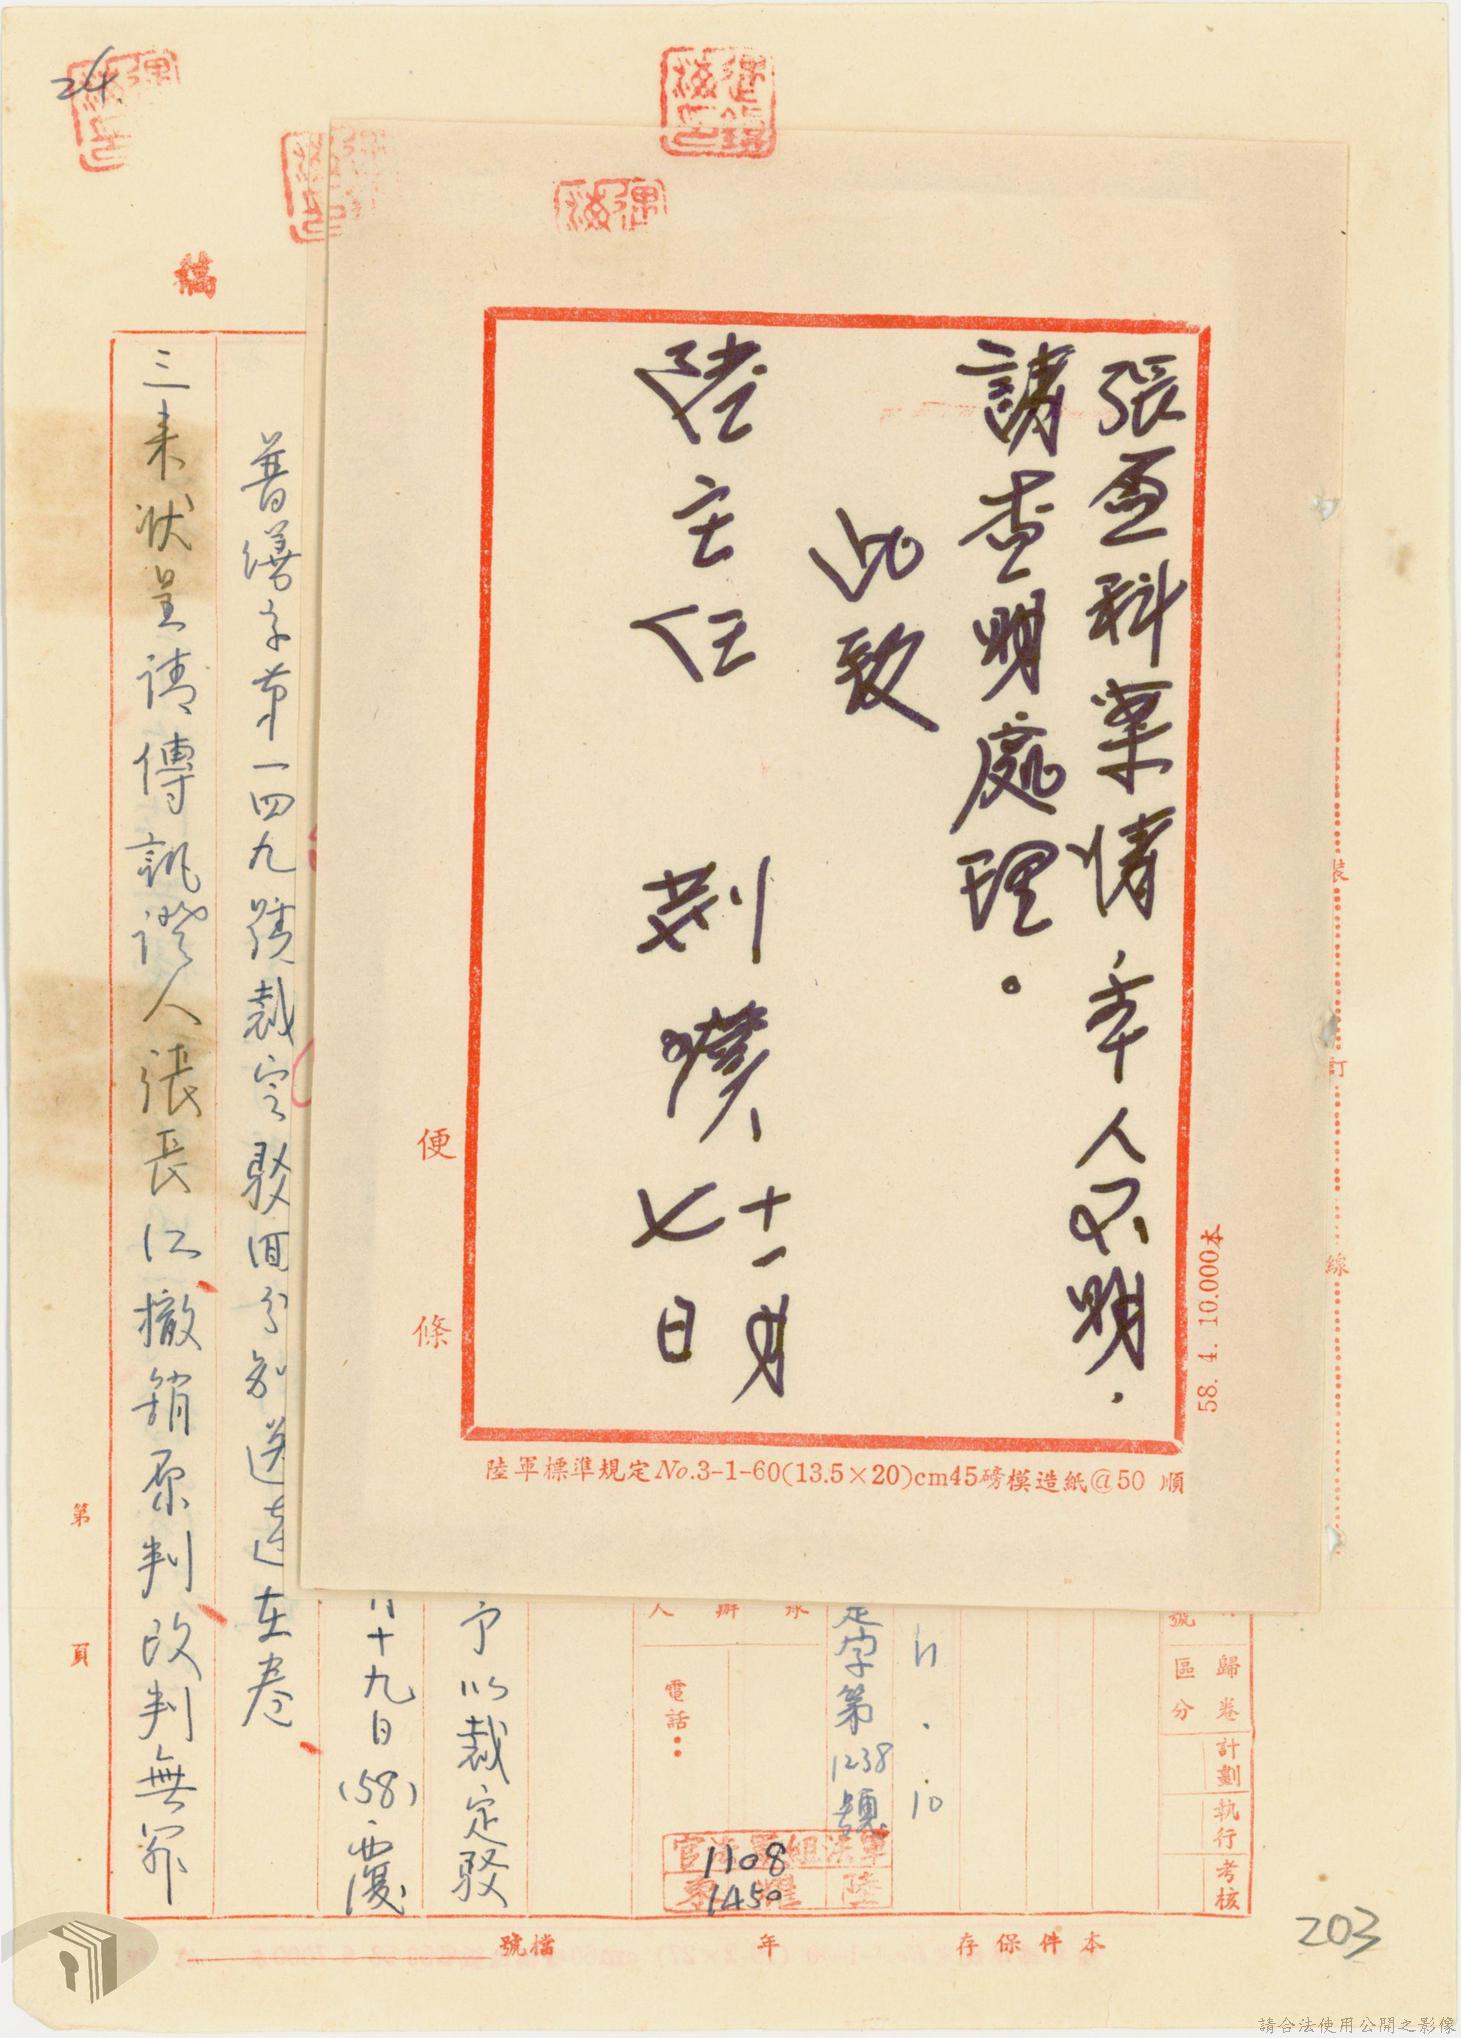 24
稿
張亟科案情本人不明.
請查明處理。
此致
陸主任
十一月
七日
便條
58. 4. 10.000本
陸軍標準規定No.3-1-60(13.5×20)cm45磅模造紙@50 順
裝
訂
線
歸卷
區分
計劃
執行
考核
11.10
字第1238號
承辦人
電話:
官法軍組法軍
1108
1450
予以裁定駁
十九日(58)覆
普繕字第一四九號裁定駁回分別送達在卷
三来狀呈請傳訊證人張長江撤銷原判改判無罪
第 頁
檔號
年
本件保存
203
請合法使用公開之影像